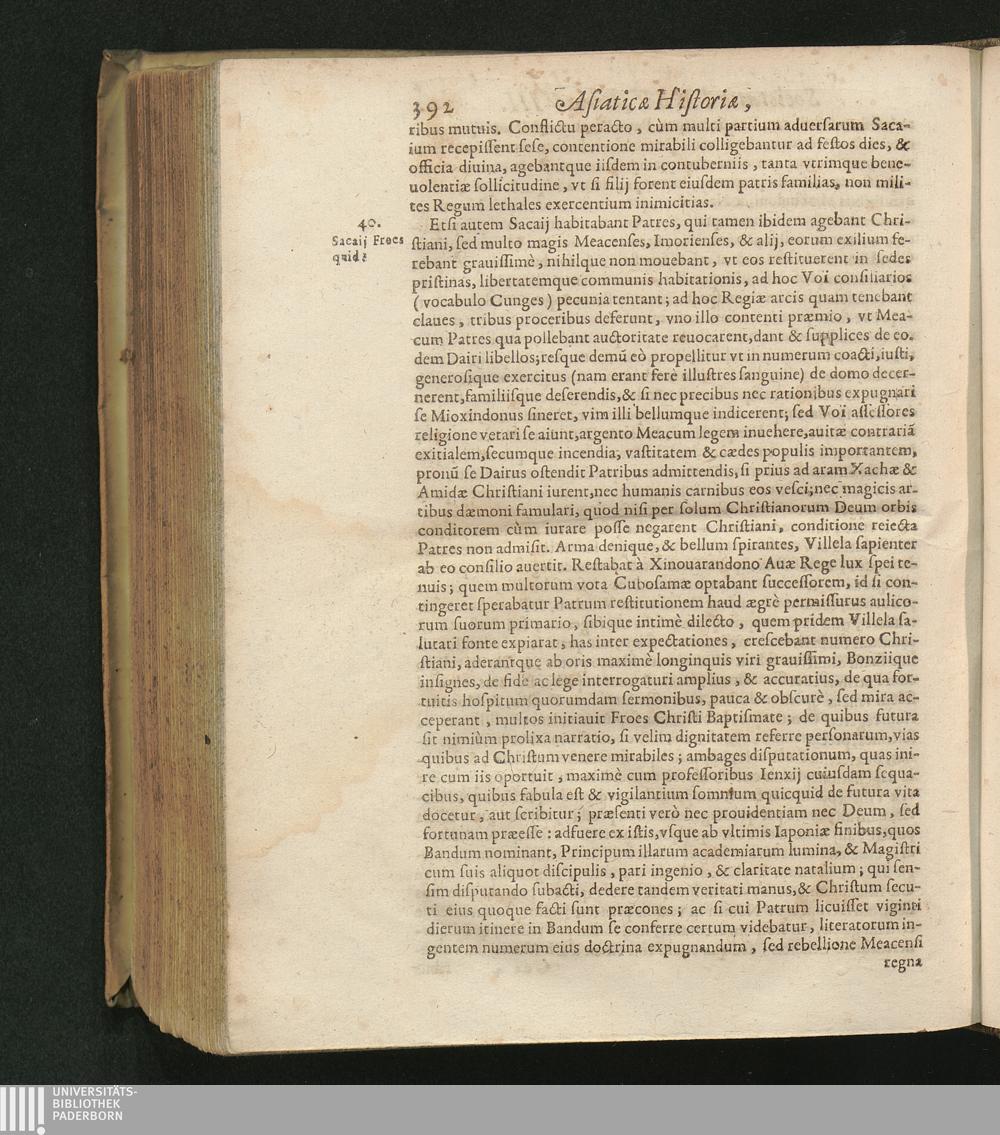 392 Asiaticæ Historiæ,
ribus mutuis. Conflictu peracto, cùm multi partium aduersarum Saca-
ium recepissent sese, contentione mirabili colligebantur ad festos dies, &
officia diuina, agebantque iisdem in contuberniis, tanta vtrimque bene-
uolentiæ sollicitudine, vt si filij forent eiusdem patris familias, non mili-
tes Regum lethales exercentium inimicitias.
40.
Sacaij Froes
quid?
Etsi autem Sacaij habitabant Patres, qui tamen ibidem agebant Chri-
stiani, sed multo magis Meacenses, Imorienses, & alij, eorum exilium fe-
rebant grauissimè, nihilque non mouebant, vt eos restituerent in sedes
pristinas, libertatemque communis habitationis, ad hoc Voï consiliarios
(vocabulo Cunges) pecunia tentant; ad hoc Regiæ arcis quam tenebant
claues, tribus proceribus deferunt, vno illo contenti præmio, vt Mea-
cum Patres qua pollebant auctoritate reuocarent, dant & supplices de eo.
dem Dairi libellos; resque demũ eò propellitur vt in numerum coacti, iusti,
generosique exercitus (nam erant ferè illustres sanguine) de domo decer-
nerent, familiisque deserendis, & si nec precibus nec rationibus expugnari
se Mioxindonus sineret, vim illi bellumque indicerent; sed Voï assessores
religione vetari se aiunt, argento Meacum legem inuehere, auitæ contrariã
exitialem, secumque incendia, vastitatem & cædes populis importantem,
pronũ se Dairus ostendit Patribus admittendis, si prius ad aram Xachæ &
Amidæ Christiani iurent, nec humanis carnibus eos vesci; nec magicis ar-
tibus dæmoni famulari, quod nisi per solum Christianorum Deum orbis
conditorem cùm iurare posse negarent Christiani, conditione reiecta
Patres non admisit. Arma denique, & bellum spirantes, Villela sapienter
ab eo consilio auertit. Restabat à Xinouarandono Auæ Rege lux spei te-
nuis; quem multorum vota Cubosamæ optabant successorem, id si con-
tingeret sperabatur Patrum restitutionem haud ægrè permissurus aulico-
rum suorum primario, sibique intimè dilecto, quem pridem Villela sa-
lutari fonte expiarat, has inter expectationes, crescebant numero Chri-
stiani, aderantque ab oris maximè longinquis viri grauissimi, Bonziique
insignes, de fide ac lege interrogaturi amplius, & accuratius, de qua for-
tuitis hospitum quorumdam sermonibus, pauca & obscurè, sed mira ac-
ceperant, multos initiauit Froes Christi Baptismate; de quibus futura
sit nimiùm prolixa narratio, si velim dignitatem referre personarum, vias
quibus ad Christum venere mirabiles; ambages disputationum, quas ini-
re cum iis oportuit, maximè cum professoribus Ienxij cuiusdam sequa-
cibus, quibus fabula est & vigilantium somnium quicquid de futura vita
docetur, aut scribitur; præsenti verò nec prouidentiam nec Deum, sed
fortunam præesse: adfuere ex istis, vsque ab vltimis Iaponiæ finibus, quos
Bandum nominant, Principum illarum academiarum lumina, & Magistri
cum suis aliquot discipulis, pari ingenio, & claritate natalium; qui sen-
sim disputando subacti, dedere tandem veritati manus, & Christum secu-
ti eius quoque facti sunt præcones; ac si cui Patrum licuisset viginti
dierum itinere in Bandum se conferre certum videbatur, literatorum in-
gentem numerum eius doctrina expugnandum, sed rebellione Meacensi
regna
UNIVERSITÄTS-
BIBLIOTHEK
PADERBORN